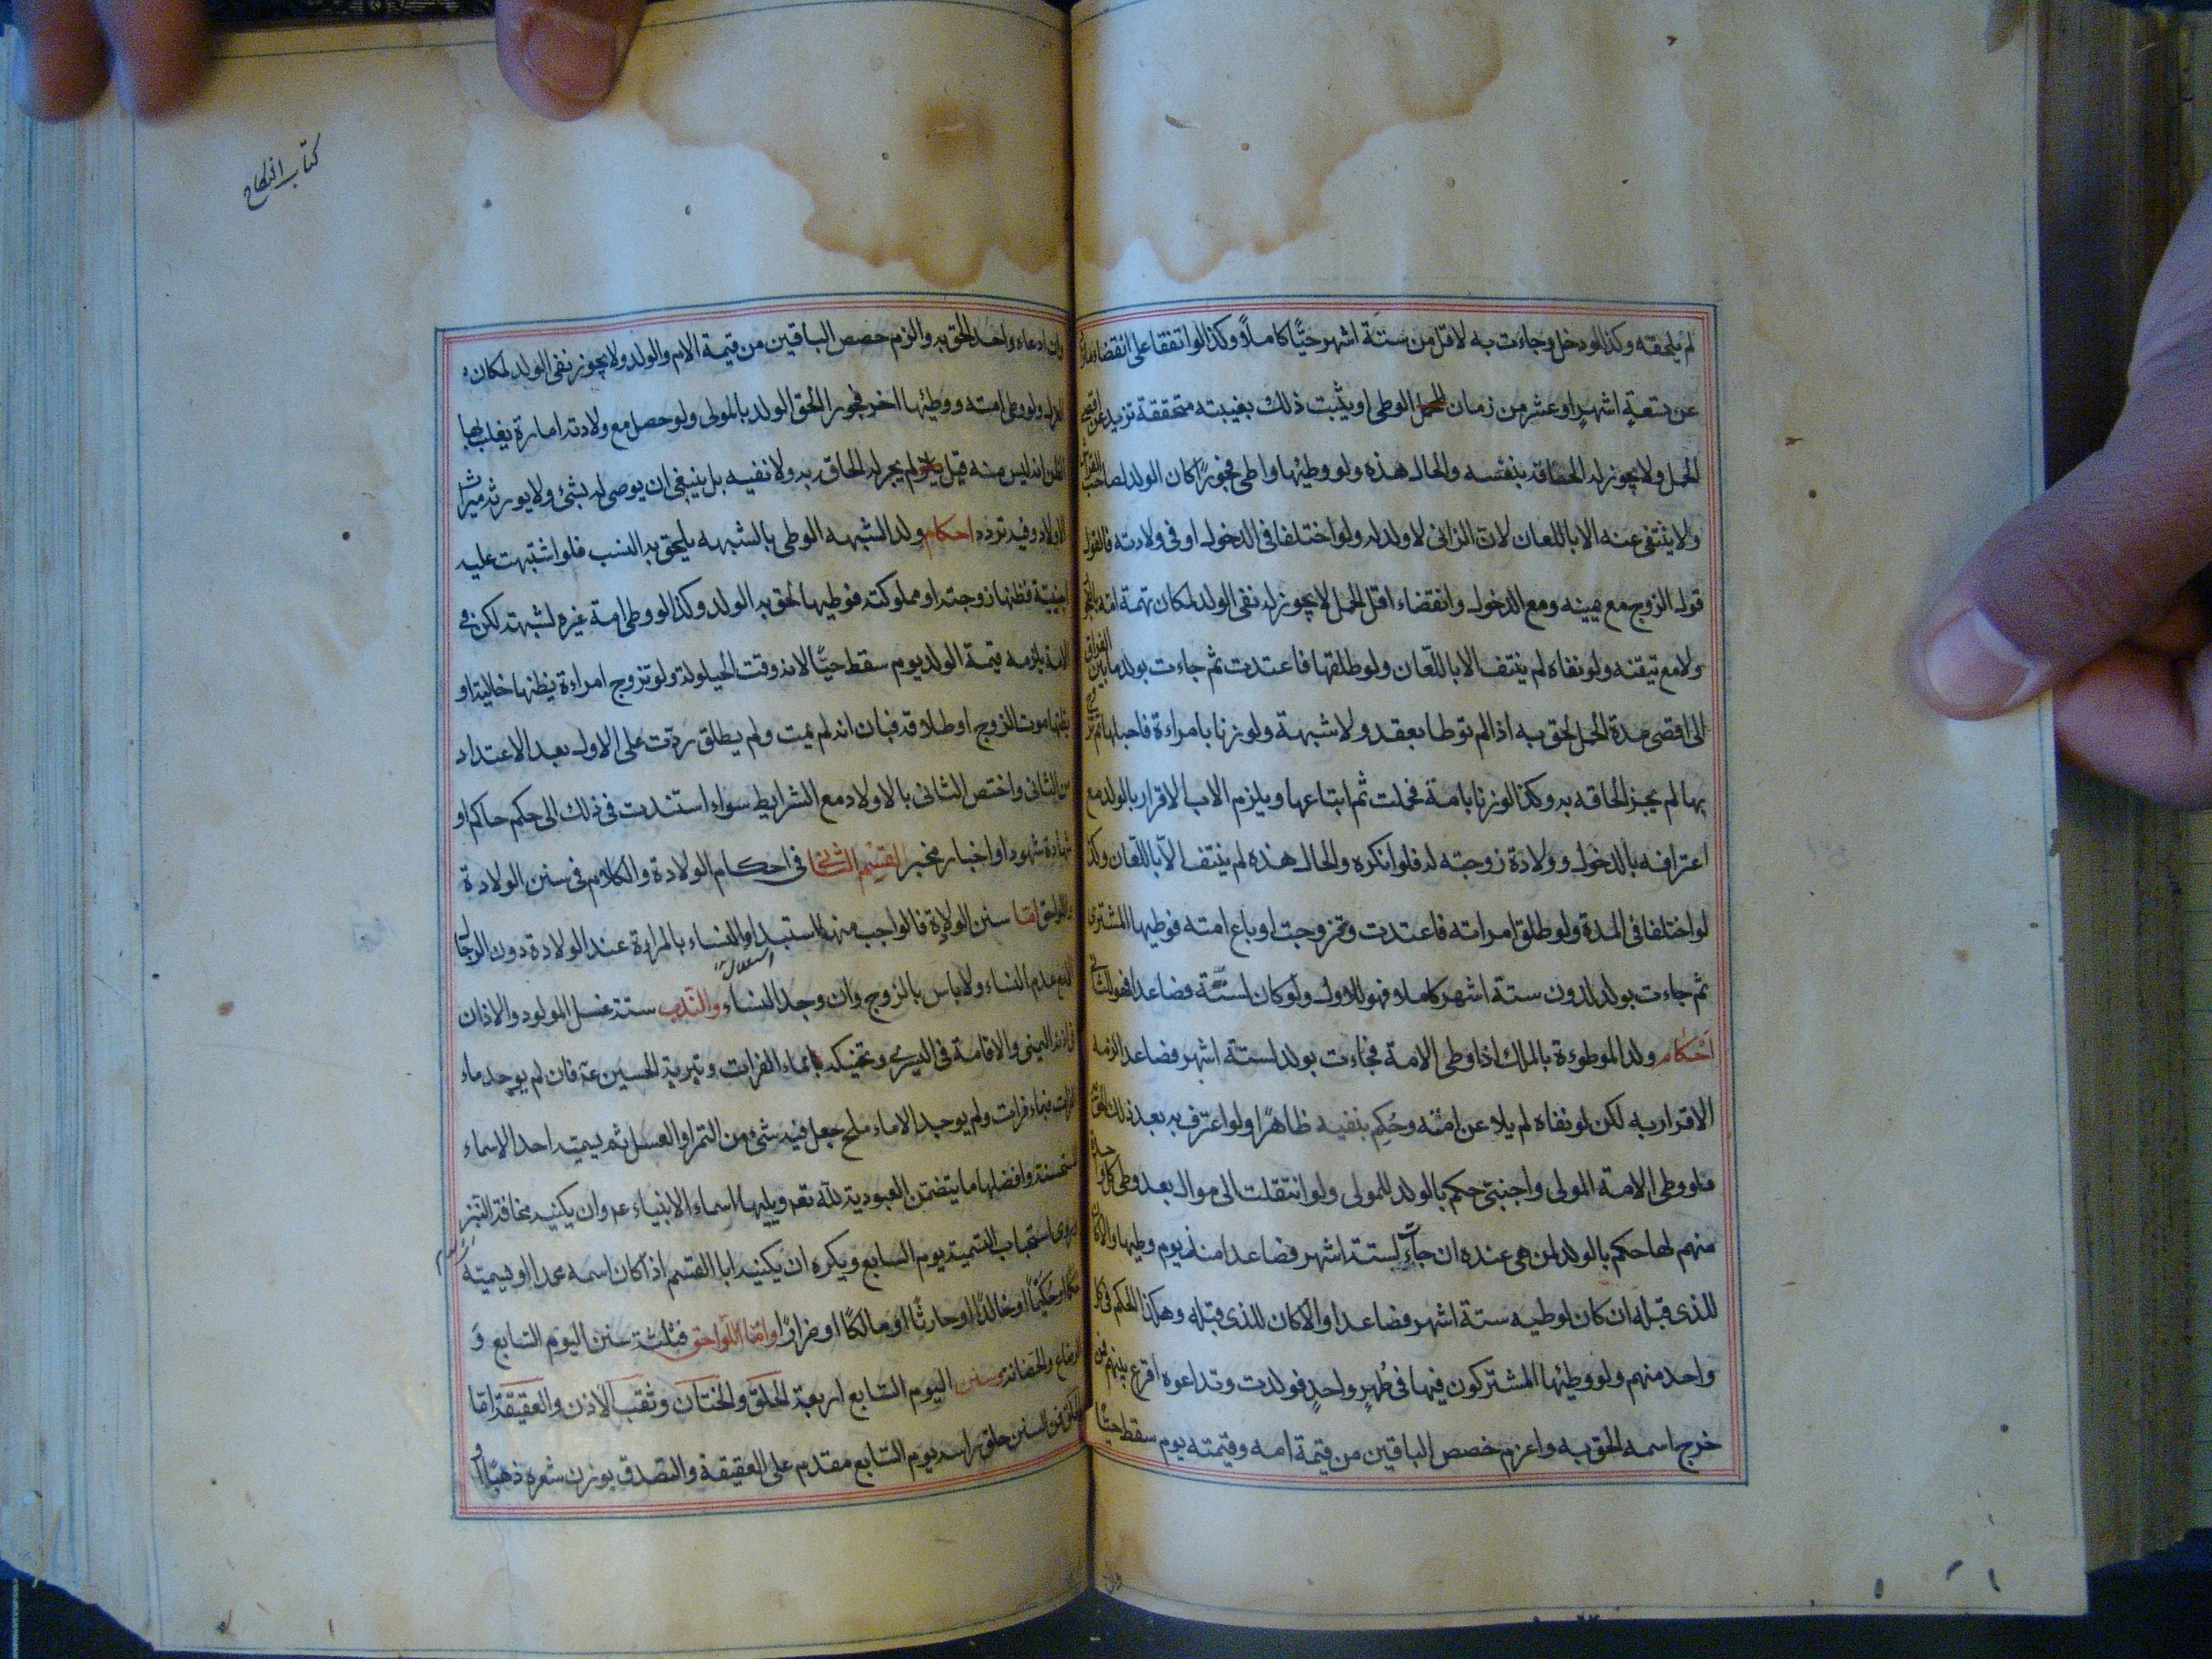 لم يلحقه وكذا لو دخل وجاءت به لاقل من ستة اشهر حيًا كاملًا وكذا لو اتفقا على انقضاء مازاد
عن تسعة اشهر او عشر من زمان الوطى او يثبت ذلك بغيبته متحققة تزيد عن اقصى
الحمل ولا يجوز له الحاقه بنفسه والحال هذه ولو وطيها واطى فجورًا كان الولد لصاحب الفراش
ولا ينتفى عنه الا باللعان لان الزانى لا ولد له ولو اختلفا فى الدخول او فى ولادته فالقول
قول الزوج مع يمينه ومع الدخول وانقضاء اقل الحمل لا يجوز له نفى الولد لمكان تهمة امه بالفجور
ولا مع تيقنه ولو نفاه لم ينتف الا باللعان ولو طلقها فاعتدت ثم جاءت بولد ما بين الفراق
الى اقصى مدة الحمل لحق به اذا لم توطا بعقد ولا شبهة ولو زنا بامراءة فاحبلها ثم تزوج
بها لم يجز الحاقه به وكذا لو زنا بامة فحملت ثم ابتاعها ويلزم الاب الاقرار بالولد مع
اعترافه بالدخول وولادة زوجته له فلو انكره والحال هذه لم ينتف الا باللعان وكذا
لو اختلفا فى المدة ولو طلق امراته فاعتدت وتزوجت او باع امته فوطيها المشترى
ثم جاءت بولد لدون ستة اشهر كاملا فهو للاول ولو كان لستة فصاعدا فهو للثانى
احكام ولد الموطوءة بالملك اذا وطى الامة فجاءت بولد لستة اشهر فصاعدا لزمه
الاقرار به لكن لو نفاه لم يلاعن امه وحكم بنفيه ظاهرًا ولو اعترف به بعد ذلك الحق به
فلو وطى الامة المولى واجنبى حكم بالولد للمولى ولو انتقلت الى موال بعد وطى كل واحد
منهم لها حكم بالولد لمن هى عنده ان جاء لستة اشهر فصاعدا منذ يوم وطيها والا كان
للذى قبله ان كان لوطيه ستة اشهر فصاعدا والا كان للذى قبله وهكذا الحكم فى كل
واحد منهم ولو وطيها المشتركون فيها فى طُهرٍ واحدٍ فولدت وتداعوه اقرع بينهم فمن
خرج اسمه الحق به واغرم حصص الباقين من قيمة امه وقيمته يوم سقط حيًا
كتاب النكاح
وان ادعاه واحد الحق به والزم حصص الباقين من قيمة الام والولد ولا يجوز نفى الولد لمكان
العزل ولو وطى امته ووطيها اخر فجورا الحق الولد بالمولى ولو حصل مع ولادته امارة يغلب بها
الظن انه ليس منه قيل لم يجز له الحاقه به ولا نفيه بل ينبغى ان يوصى له بشئ ولا يورثه ميراث
الاولاد وفيه تردد احكام ولد الشبهه الوطى بالشبهه يلحق به النسب فلو اشتبهت عليه
اجنبية فظنها زوجته او مملوكته فوطيها لحق به الولد وكذا لو وطى امة غيره لشبهته لكن فى
الامة يلزمه قيمة الولد يوم سقط حيًا لانه وقت الحيلولة ولو تزوج امراءة يظنها خالية او
يظنها موت الزوج او طلاقه فبان انه لم يمت ولم يطلق ردت على الاول بعد الاعتداد
من الثانى واختص الثانى بالاولاد مع الشرايط سواء استندت فى ذلك الى حكم حاكم او
شهادة شهود او اخبار مخبر القسم الثانى فى احكام الولادة والكلام فى سنن الولادة
واللواحق اما سنن الولادة فالواجب منها استبداد النساء بالمراءة عند الولادة دون الرجال
الا مع عدم النساء ولا باس بالزوج وان وجد النساء والندب ستة غسل المولود والاذان
فى اذنه اليمنى والاقامة فى اليسرى وتحنيكه بماء الفرات وتربة الحسين ع فان لم يوجد ماء
الفرات فبماء فرات ولم يوجد الا ماء ملح جعل فيه شئ من التمر او العسل ثم يسميه احد الاسماء
المستحسنة وافضلها ما يتضمن العبودية لله تعه ويليها اسماء الانبياء ع وان يكنيه مخافة النبز
وروى استحباب التسمية يوم السابع ويكره ان يكنيه ابا القسم اذا كان اسمه محمدا او يسميه
حكمًا او حكيمًا او خالدًا او حارثًا او مالكًا او ضرارًا واما اللواحق فثلثة سنن اليوم السابع و
الرضاع والحضانة وسنن اليوم السابع اربعة الحلق والختان وثقب الاذن والعقيقة اما
الحلق فمن السنن حلق راسه يوم السابع مقدم على العقيقة والتصدق بوزن شعره ذهبًا او